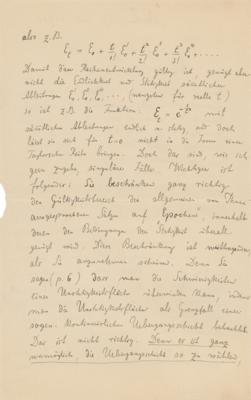 also z.B.
E_t = E_0 + t/1! E_0' + t²/2! E_0'' + t³/3! E_0''' + ....
Damit diese Reihenentwicklung gültig ist, genügt aber
nicht die Endlichkeit und Stetigkeit sämtlicher
Ableitungen E_0', E_0'', E_0''' ....
so ist z.B. die Funktion E_t = e^{-1/t²} mit
sämtlichen Ableitungen endlich u. stetig, und doch
lässt sie sich für t=0 nicht in die Form einer
Taylorschen Reihe bringen. Doch das sind, wie ich
gern zugebe, singuläre Fälle. Wichtiger ist
folgendes: Sie beschränken ganz richtig
den Gültigkeitsbereich des allgemeinen von Ihnen
ausgesprochenen Satzes auf "Epochen", innerhalb
deren den Bedingungen der Stetigkeit überall
genügt wird. Diese Beschränkung ist
als Sie anzunehmen scheinen. Denn Sie
sagen (p. 6) dass man die Schwierigkeiten
einer Unstetigkeitsfläche überwinden kann, indem
man die Unstetigkeitsfläche als Grenzfall einer
sogen. kontinuierlichen Uebergangsschicht betrachtet.
Das ist nicht richtig. Denn es ist ganz
unmöglich, die Uebergangsschicht so zu wählen,